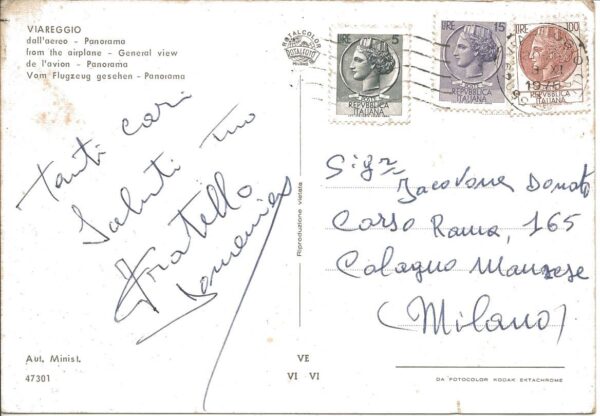 VIAREGGIO
dall'aereo - Panorama
from the airplane - General view
de l'avion - Panorama
Vom Flugzeug gesehen - Panorama
ROTALCOLOR
ROTALFOTO
MILANO
LIRE 5
POSTE
REPVBBLICA
ITALIANA
LIRE 15
POSTE
REPVBBLICA
ITALIANA
LIRE 100
REPVBBLICA
ITALIANA
XI
1976
Tanti cari
Saluti tuo
Fratello
Domenico
Riproduzione vietata
Sigr
Jacovone Donato
Corso Roma, 165
Cologno Monzese
(Milano)
Aut. Minist.
47301
VE
VI VI
DA FOTOCOLOR KODAK EKTACHROME